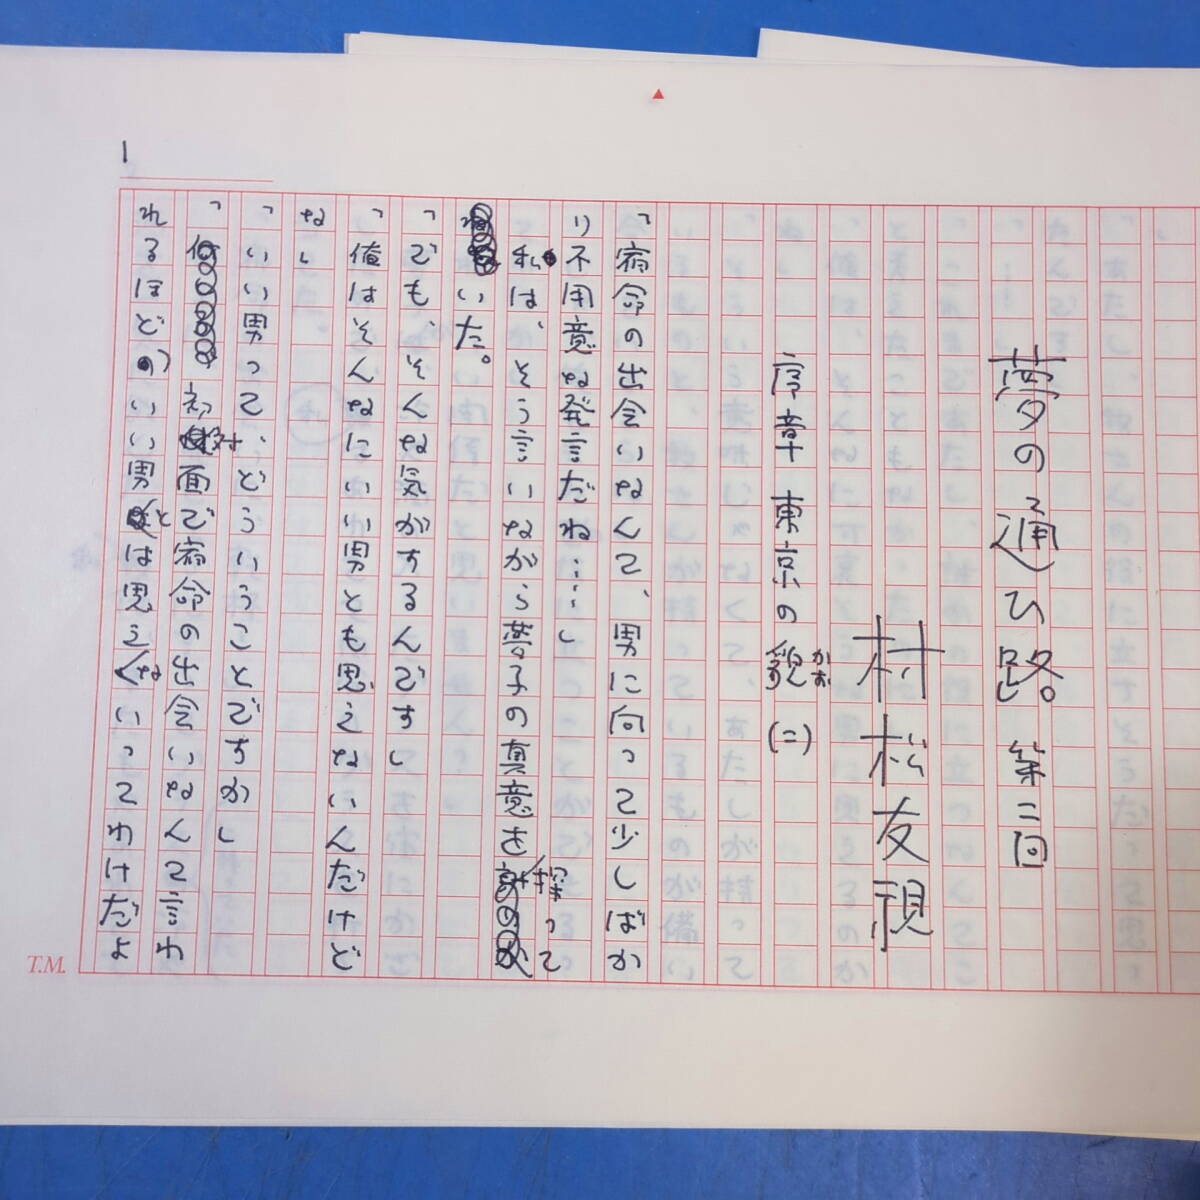 1
夢の通ひ路。 第二回
村松友視
序章 東京の貌(二)
かお
「宿命の出会いなんて、男に向って少しばか
り不用意な発言だね……」
私は、そう言いながら夢子の真意を探って
いた。
「でも、そんな気がするんです」
「俺はそんなにいい男とも思えないんだけど
な」
「いい男って、どういうことですか」
「初対面で宿命の出会いなんて言わ
れるほどのいい男とは思えないってわけだよ
T.M.